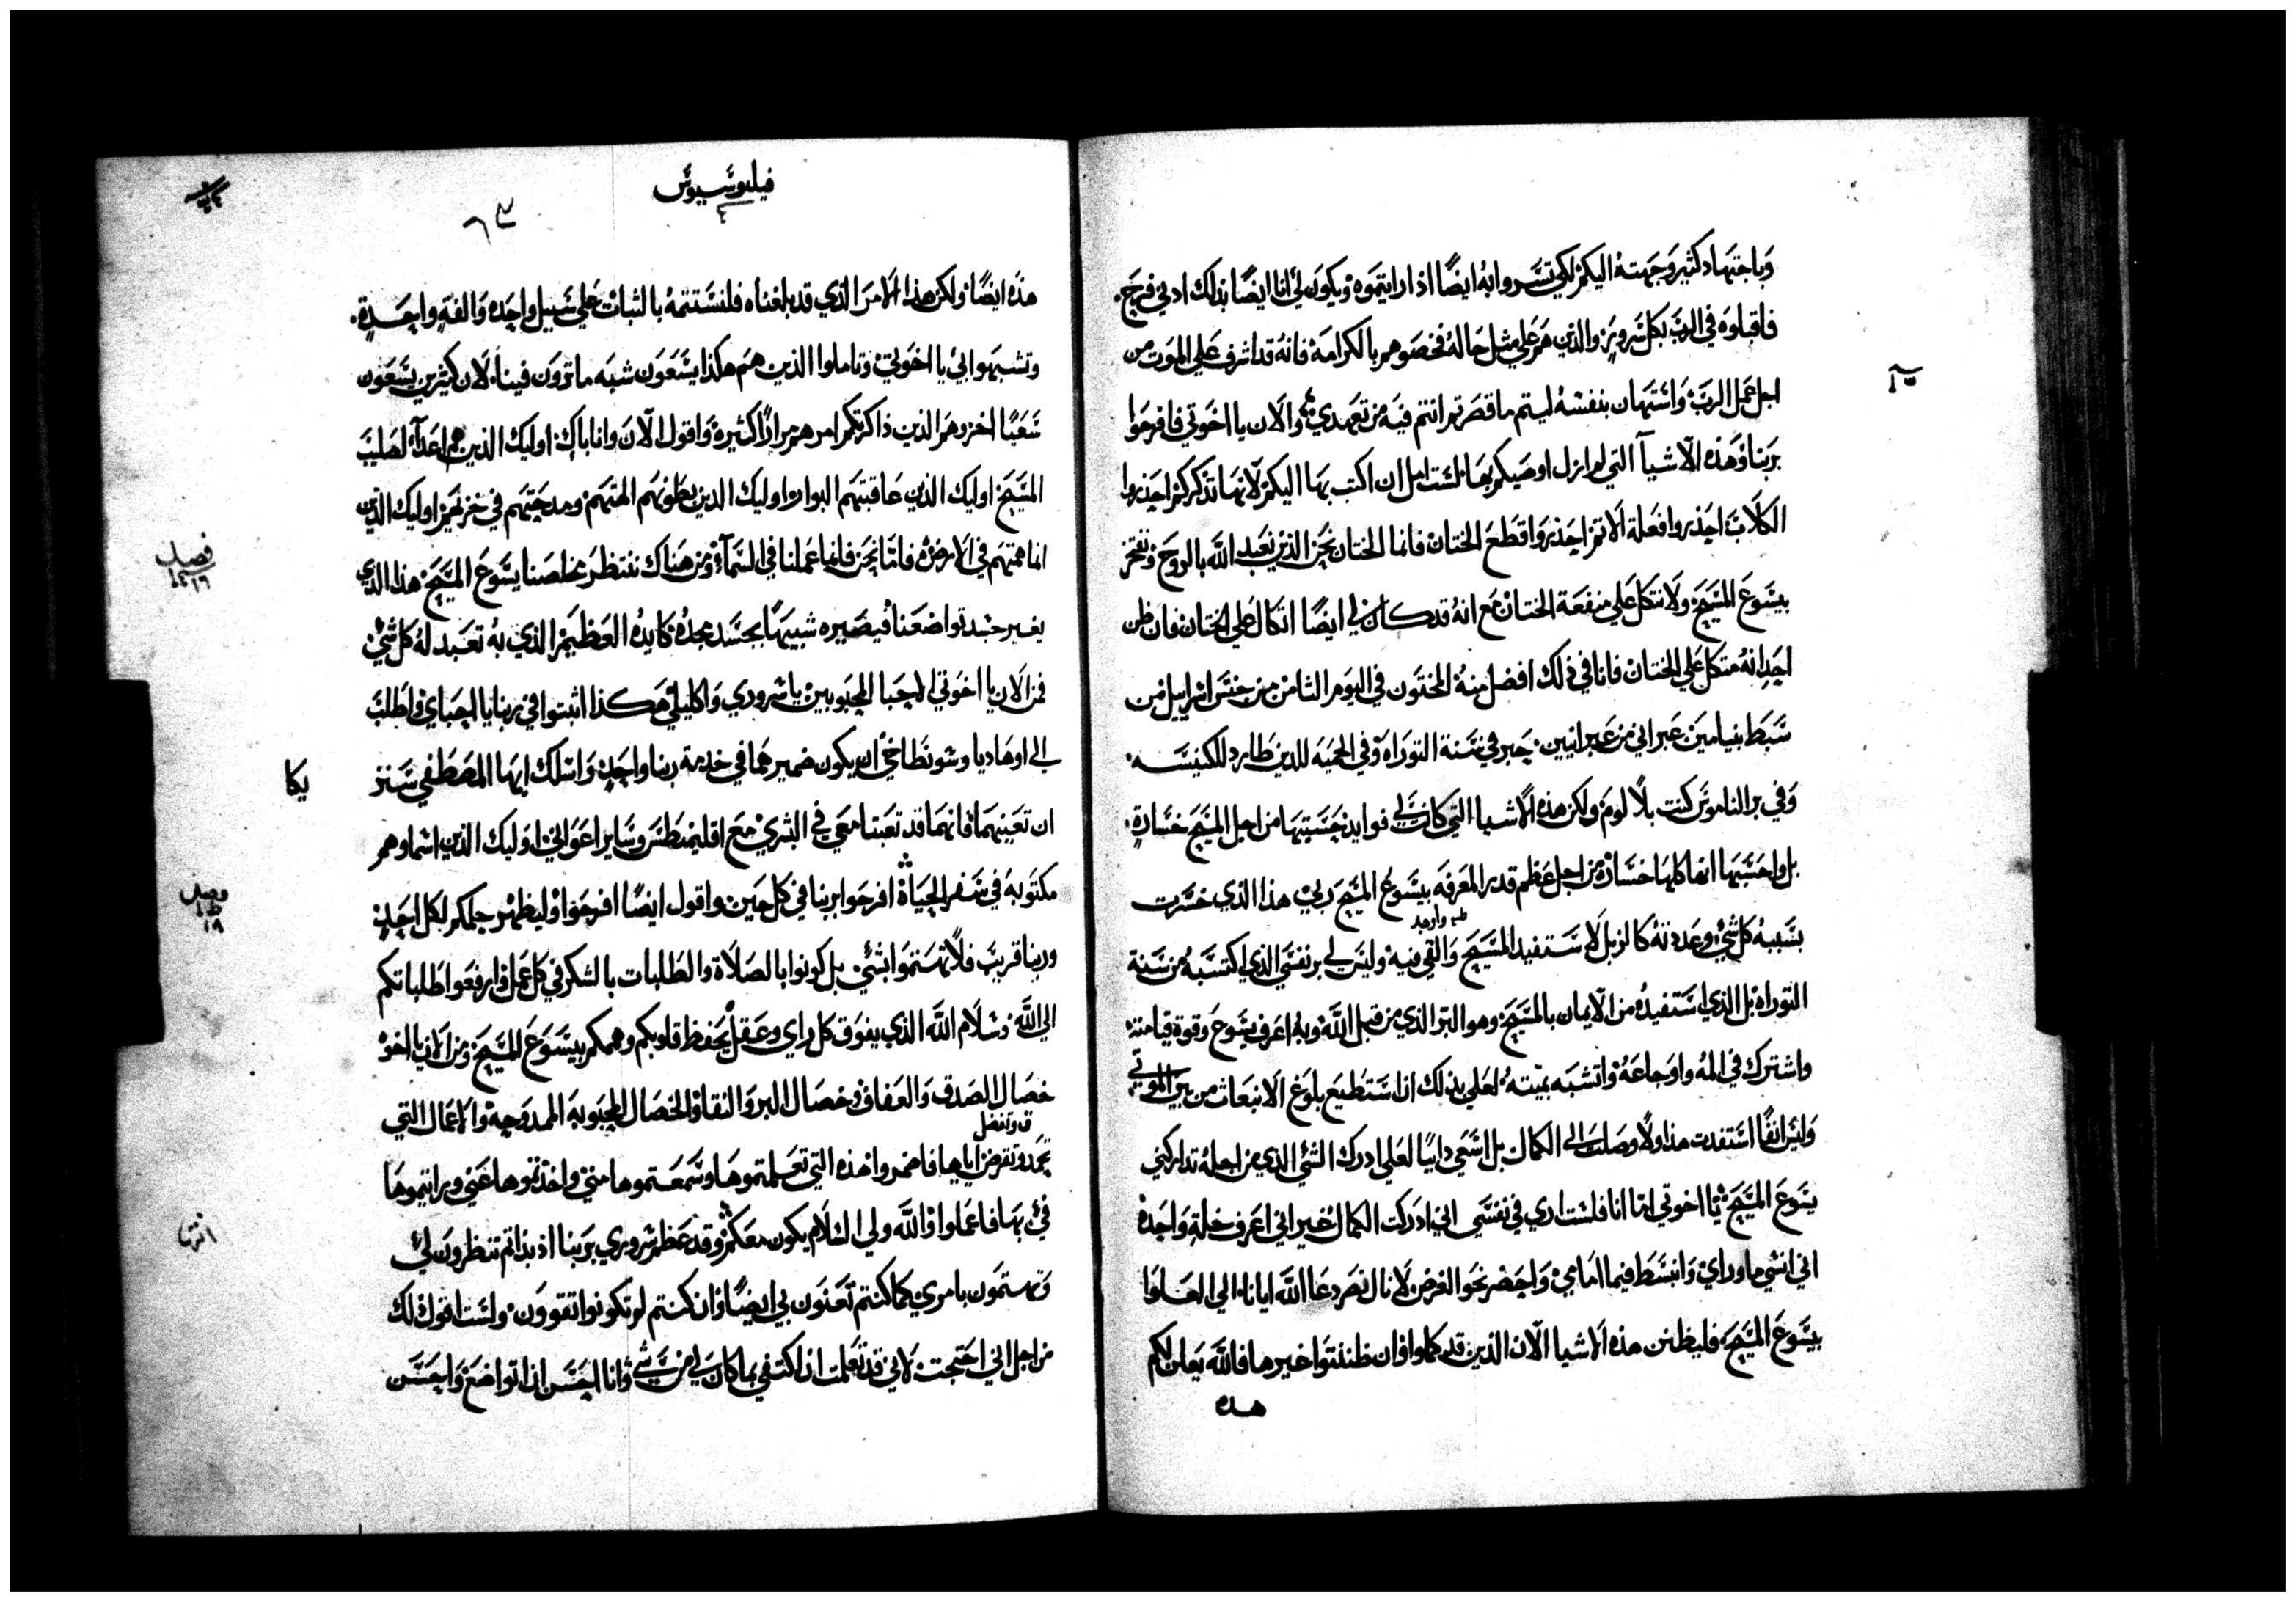 وباجتهاد كثير وجهته اليكم لكي تسروا به ايضًا اذا رايتموه ويكون لي انا ايضًا بذلك ادني فرج.
فاقبلوه في الرب بكل سرور والذين هم علي مثل حاله فخصوهم بالكرامة فانه قد اشرف علي الموت من
اجل عمل الرب واستهان بنفسه ليتم ما قصرتم انتم فيه من تعهدي والان يا اخوتي فافرحوا
بربنا وهذه الاشيآ التي لم ازل اوصيكم بها لست امل ان اكتب بها اليكم لانها تذكركم احذروا
الكلاب احذروا فعلة الاثم احذروا قطع الختان فانما الختان نحن الذين نعبد الله بالروح ونفتخر
بيسوع المسيح ولا نتكل علي منفعة الختان مع انه قد كان لي ايضًا اتكال علي الختان وان ظن
احد انه متكل علي الختان فانا في ذلك افضل منه المختون في اليوم الثامن من جنس اسرايل من
سبط بنيامين عبراني من عبرانيين. حبر في سنة التوراه وفي الحميه للدين طارد للكنيسه.
وفي بر الناموس كنت بلا لوم ولكن هذه الاشيا التي كانت لي فوايد حسبتها من اجل المسيح خسارة.
بل واحسبها انها كلها خسارة من اجل عظم قدر المعرفه بيسوع المسيح ربي هذا الذي خسرت
بسببه كل شي وعددته كالزبل لاستفيد المسيح والقي فيه وليس لي بر نفسي الذي اكتسبه من سنة
التوراه بل الذي استفيده من الايمان بالمسيح وهو البر الذي من قبل الله وبه اعرف يسوع وقوة قيامته
واشترك في المه واوجاعه واتشبه بميتته لعلي بذلك ان استطيع بلوغ الانبعاث من بين الموتي
وليس انفًا استفدت هذا ولا وصلت الي الكمال بل اسعي دايبًا لعلي ادرك الشي الذي من اجله تداركني
يسوع المسيح يا اخوتي اما انا فلست اري في نفسي اني ادركت الكمال غير اني اعرف خلة واحدة
اني انسي ما وراي وانبسط فيما امامي واحضر نحو الغرض لانال نصر دعا الله ايانا الي العلوا
بيسوع المسيح فليظن هذه الاشيا الان الذين قد كملوا وان ظننتوا غيرها فالله يعلن لكم
هذه
فيليوسيوس
٤
٦٣
هذه ايضًا ولكن هذا الامر الذي قد بلغناه فلنستتمه بالثبات علي سبيل واحده والفة واحدة.
وتشبهوا بي يا اخوتي وتاملوا الذين هم هكذا يسعون شبه ما ترون فينا لان كثيرين يسعون
سعيًا اخر وهم الذين ذاكرتكم امرهم مرارًا كثيرة واقول الان وانا باك اوليك الذين هم اعدآ لصليب
المسيح اوليك الذين عاقبتهم البوار اوليك الذين بطونهم الهتهم ومدحتهم في خزيهم اوليك الذين
انما همتهم في الارض فاما نحن فانما عملنا في السمآ ومن هناك ننتظر مخلصنا يسوع المسيح هذا الذي
يغير جسد تواضعنا فيصيره شبيهًا بجسد مجده كايده العظيم الذي به تعبد له كل شي
فمن الان يا اخوتي الاحبا المحبوبين يا سروري واكليلي هكذا اثبتوا في ربنا يا احباي واطلب
الي اوهاديا وسونطاخي ان يكون ضميرهما في خدمة ربنا واحد واسلك ايها المصطفي سنز
يكا
ان تعينهما فانهما قد تعبتا معي في البشري مع اقليمنطس وساير اعواني اوليك الذين اسماوهم
مكتوبة في سفر الحياة افرحوا بربنا في كل حين واقول ايضًا افرحوا وليظهر حلمكم لكل احد
وربنا قريب فلا تهتموا بشي بل كونوا بالصلاة والطلبات بالشكر في كل عمل وارفعوا طلباتكم
الي الله وسلام الله الذي يفوق كل راي وعقل يحفظ قلوبكم وهمكم بيسوع المسيح ومن الان يا اخوة
خصال الصدق والعفاف وخصال البر والنقا والخصال المحبوبه الممدوحه والاعمال التي
تحمد وتقرض اياها فاضمروا هذه التي تعلمتموها وسمعتموها مني واخذتموها عني ورايتموها
في بها فاعملوا والله ولي السلام يكون معكم وقد عظم سروري بربنا اذ بداتم تنظرون لي
وتهتمون بامري كما كنتم تعنون بي ايضًا وان كنتم لم تكونوا تقوون ولست اقول لك
من اجل اني احتجت لاني قد تعلمت ان اكتفي بما كان لي من شي وانا احسن ان اتواضع واحسن
فصل
فصل
انتها